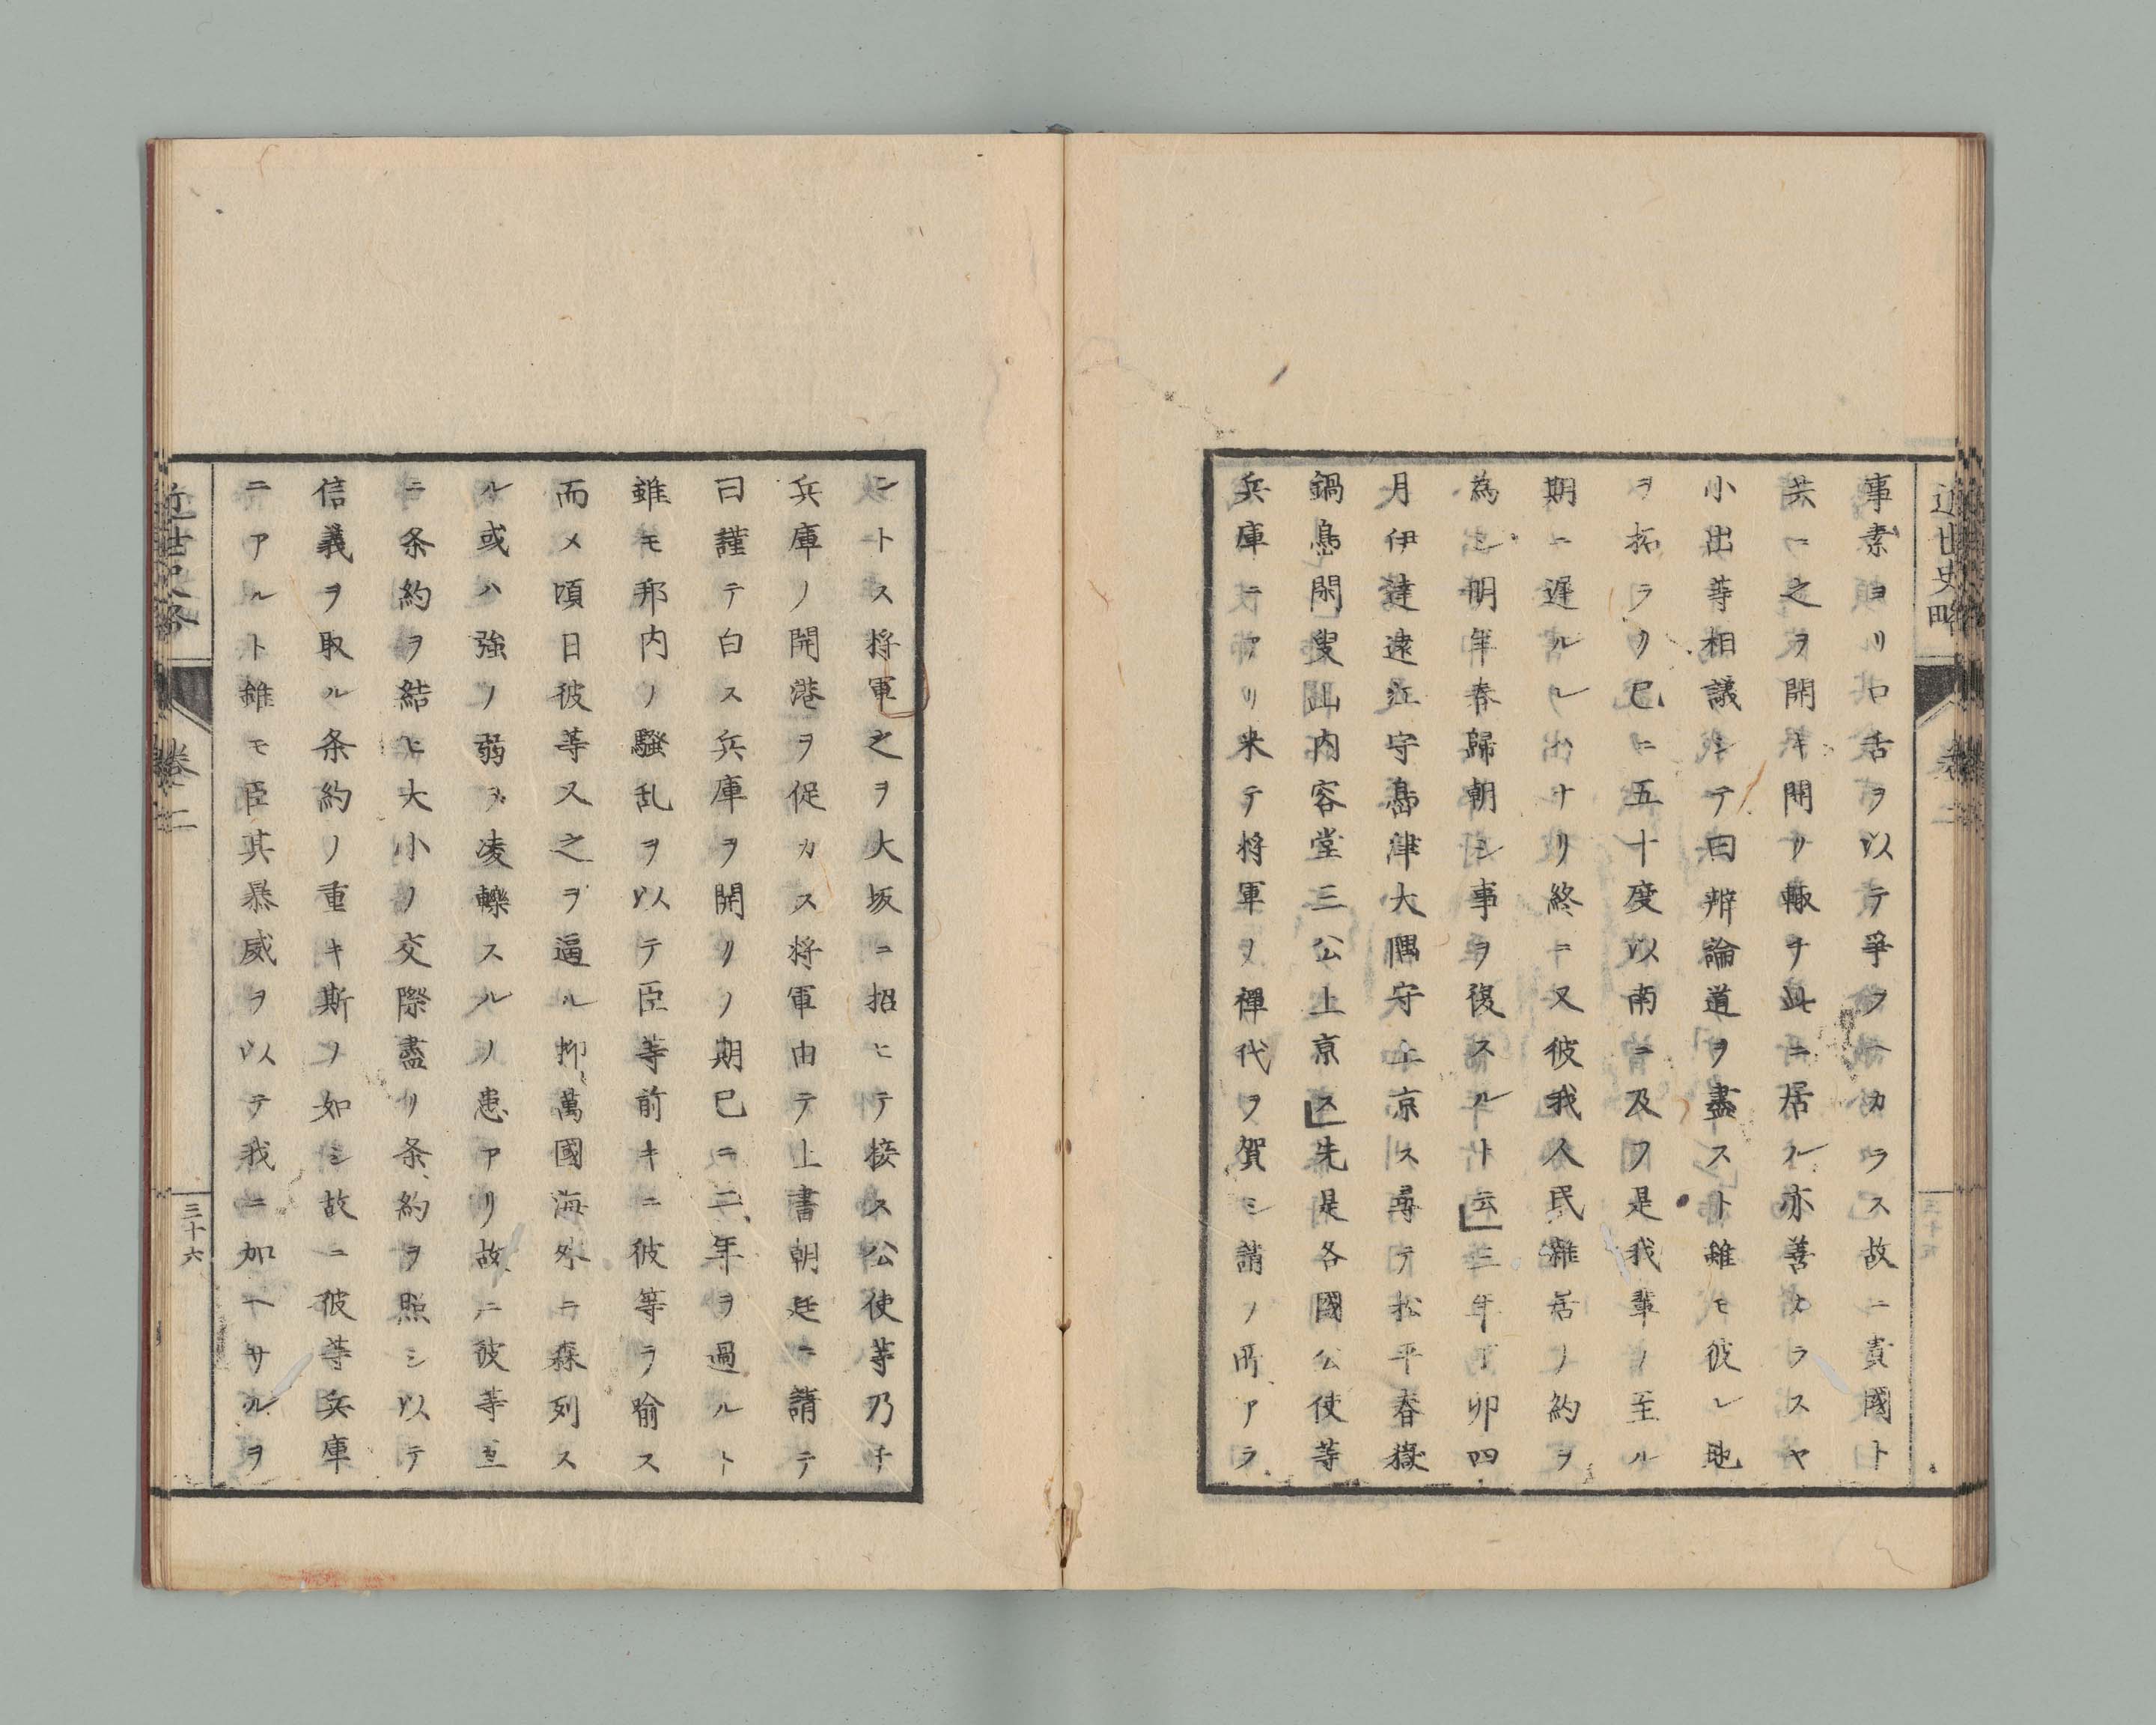 近世史略
卷二
事素ヨリ口舌ヲ以テ爭フヘカラス故ニ貴國ト
共ニ之ヲ開キ開リ輙チ此ニ居ル亦善カラスヤ
小出等相議シテ曰辨論道ヲ盡スト雖モ彼レ地
ヲ拓ラリ已ニ五十度以南ニ及フ是我輩ノ至ル
期ニ遅ルレハナリ終ニ又彼我人民雜居ノ約ヲ
為シ明年春歸朝シ事ヲ復スルト云三年丁卯四
月伊達遠江守島津大隅守上京ス尋テ松平春嶽
鍋島閑叟山内容堂三公上京ス先是各國公使等
兵庫ニアリ来テ将軍ノ禪代ヲ賀シ請ノ所アラ
ントス将軍之ヲ大坂ニ招ヒテ接ス公使等乃チ
兵庫ノ開港ヲ促カス将軍由テ上書朝廷ニ請テ
曰謹テ白ス兵庫ヲ開リノ期已ニ二年ヲ過ルト
雖モ邦内ノ騒乱ヲ以テ臣等前キニ彼等ラ喻ス
而メ頃日彼等又之ヲ逼ル抑萬國海外ニ森列ス
ル或ハ強ノ弱ヲ凌轢スルノ患アリ故ニ彼等亘
ニ条約ヲ結ヒ大小ノ交際盡リ条約ヲ照シ以テ
信義ヲ取ル条約ノ重キ斯ノ如シ故ニ彼等兵庫
ニアルト雖モ臣其暴威ヲ以テ我ニ加ヘサルヲ
近世史略
卷二
三十六